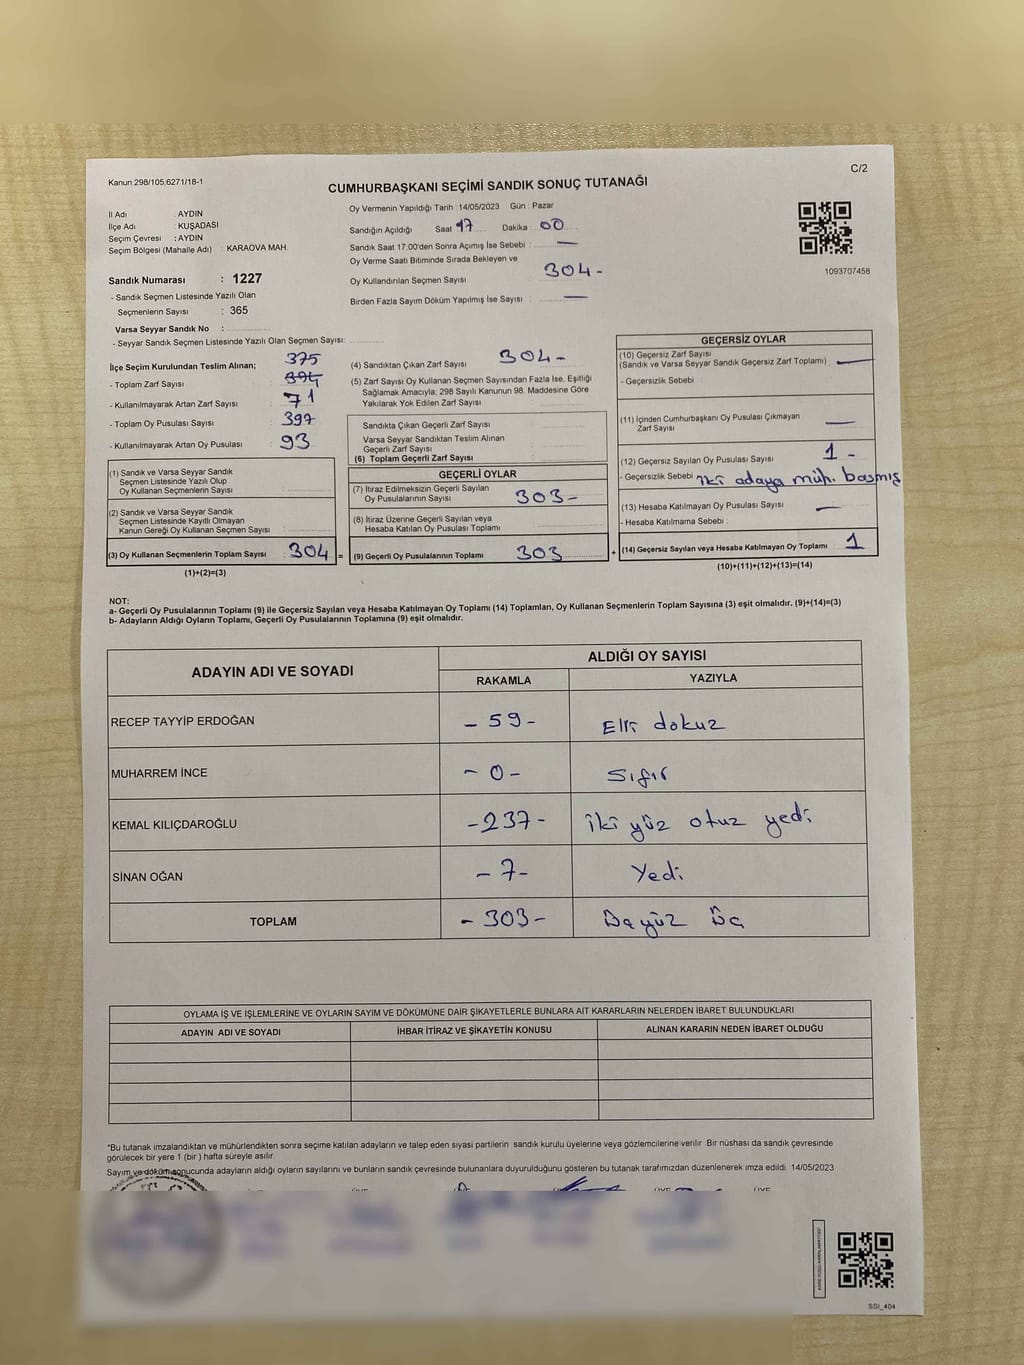 Kanun 298/105;6271/18-1
C/2
CUMHURBAŞKANI SEÇİMİ SANDIK SONUÇ TUTANAĞI
İl Adı : AYDIN
İlçe Adı : KUŞADASI
Seçim Çevresi : AYDIN
Seçim Bölgesi (Mahalle Adı) : KARAOVA MAH.
Sandık Numarası : 1227
- Sandık Seçmen Listesinde Yazılı Olan
Seçmenlerin Sayısı : 365
Varsa Seyyar Sandık No :
- Seyyar Sandık Seçmen Listesinde Yazılı Olan Seçmen Sayısı:
Oy Vermenin Yapıldığı Tarih : 14/05/2023 Gün : Pazar
Sandığın Açıldığı Saat 17 Dakika 00
Sandık Saat 17:00'den Sonra Açımış İse Sebebi : —
Oy Verme Saati Bitiminde Sırada Bekleyen ve
Oy Kullandırılan Seçmen Sayısı 304-
Birden Fazla Sayım Döküm Yapılmış İse Sayısı : —
1093707458
İlçe Seçim Kurulundan Teslim Alınan; 375
- Toplam Zarf Sayısı : 394
- Kullanılmayarak Artan Zarf Sayısı : 71
- Toplam Oy Pusulası Sayısı : 397
- Kullanılmayarak Artan Oy Pusulası : 93
(1) Sandık ve Varsa Seyyar Sandık
Seçmen Listesinde Yazılı Olup
Oy Kullanan Seçmenlerin Sayısı
(2) Sandık ve Varsa Seyyar Sandık
Seçmen Listesinde Kayıtlı Olmayan
Kanun Gereği Oy Kullanan Seçmen Sayısı
(3) Oy Kullanan Seçmenlerin Toplam Sayısı : 304 =
(1)+(2)=(3)
(4) Sandıktan Çıkan Zarf Sayısı 304-
(5) Zarf Sayısı Oy Kullanan Seçmen Sayısından Fazla İse, Eşitliği
Sağlamak Amacıyla, 298 Sayılı Kanunun 98. Maddesine Göre
Yakılarak Yok Edilen Zarf Sayısı
Sandıkta Çıkan Geçerli Zarf Sayısı
Varsa Seyyar Sandıktan Teslim Alınan
Geçerli Zarf Sayısı
(6) Toplam Geçerli Zarf Sayısı
GEÇERLİ OYLAR
(7) İtiraz Edilmeksizin Geçerli Sayılan
Oy Pusulalarının Sayısı 303-
(8) İtiraz Üzerine Geçerli Sayılan veya
Hesaba Katılan Oy Pusulası Toplamı
(9) Geçerli Oy Pusulalarının Toplamı 303 +
GEÇERSİZ OYLAR
(10) Geçersiz Zarf Sayısı
(Sandık ve Varsa Seyyar Sandık Geçersiz Zarf Toplamı) —
- Geçersizlik Sebebi :
(11) İçinden Cumhurbaşkanı Oy Pusulası Çıkmayan
Zarf Sayısı —
(12) Geçersiz Sayılan Oy Pusulası Sayısı 1 -
- Geçersizlik Sebebi iki adaya müh. basmış
(13) Hesaba Katılmayan Oy Pusulası Sayısı —
- Hesaba Katılmama Sebebi :
(14) Geçersiz Sayılan veya Hesaba Katılmayan Oy Toplamı 1
(10)+(11)+(12)+(13)=(14)
NOT:
a- Geçerli Oy Pusulalarının Toplamı (9) ile Geçersiz Sayılan veya Hesaba Katılmayan Oy Toplamı (14) Toplamları, Oy Kullanan Seçmenlerin Toplam Sayısına (3) eşit olmalıdır. (9)+(14)=(3)
b- Adayların Aldığı Oyların Toplamı, Geçerli Oy Pusulalarının Toplamına (9) eşit olmalıdır.
ADAYIN ADI VE SOYADI
ALDIĞI OY SAYISI
RAKAMLA YAZIYLA
RECEP TAYYİP ERDOĞAN - 59 - Elli dokuz
MUHARREM İNCE - 0 - Sıfır
KEMAL KILIÇDAROĞLU -237- iki yüz otuz yedi
SİNAN OĞAN - 7- Yedi
TOPLAM - 303- Üçyüz Üç
OYLAMA İŞ VE İŞLEMLERİNE VE OYLARIN SAYIM VE DÖKÜMÜNE DAİR ŞİKAYETLERLE BUNLARA AİT KARARLARIN NELERDEN İBARET BULUNDUKLARI
ADAYIN ADI VE SOYADI İHBAR İTİRAZ VE ŞİKAYETİN KONUSU ALINAN KARARIN NEDEN İBARET OLDUĞU
*Bu tutanak imzalandıktan ve mühürlendikten sonra seçime katılan adayların ve talep eden siyasi partilerin sandık kurulu üyelerine veya gözlemcilerine verilir. Bir nüshası da sandık çevresinde
görülecek bir yere 1 (bir ) hafta süreyle asılır.
Sayım ve döküm sonucunda adayların aldığı oyların sayılarını ve bunların sandık çevresinde bulunanlara duyurulduğunu gösteren bu tutanak tarafımızdan düzenlenerek imza edildi 14/05/2023
SSI_404